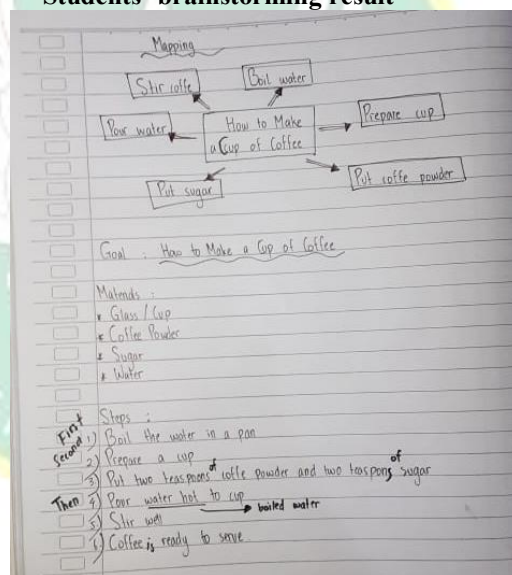 Students' brainstorming result
Mapping
Stir coffe
Boil water
Pour water
How to Make
a Cup of Coffee
Prepare cup
Put sugar
Put coffe powder
Goal : How to Make a Cup of Coffee
Materials :
* Glass / Cup
* Coffee Powder
* Sugar
* Water
Steps :
First 1) Boil the water in a pan
Second 2) Prepare a cup
3) Put two teaspoens of coffe powder and two teaspons of sugar
Then 4) Pour water hot to cup
boiled water
5) Stir well
6) Coffee is ready to serve